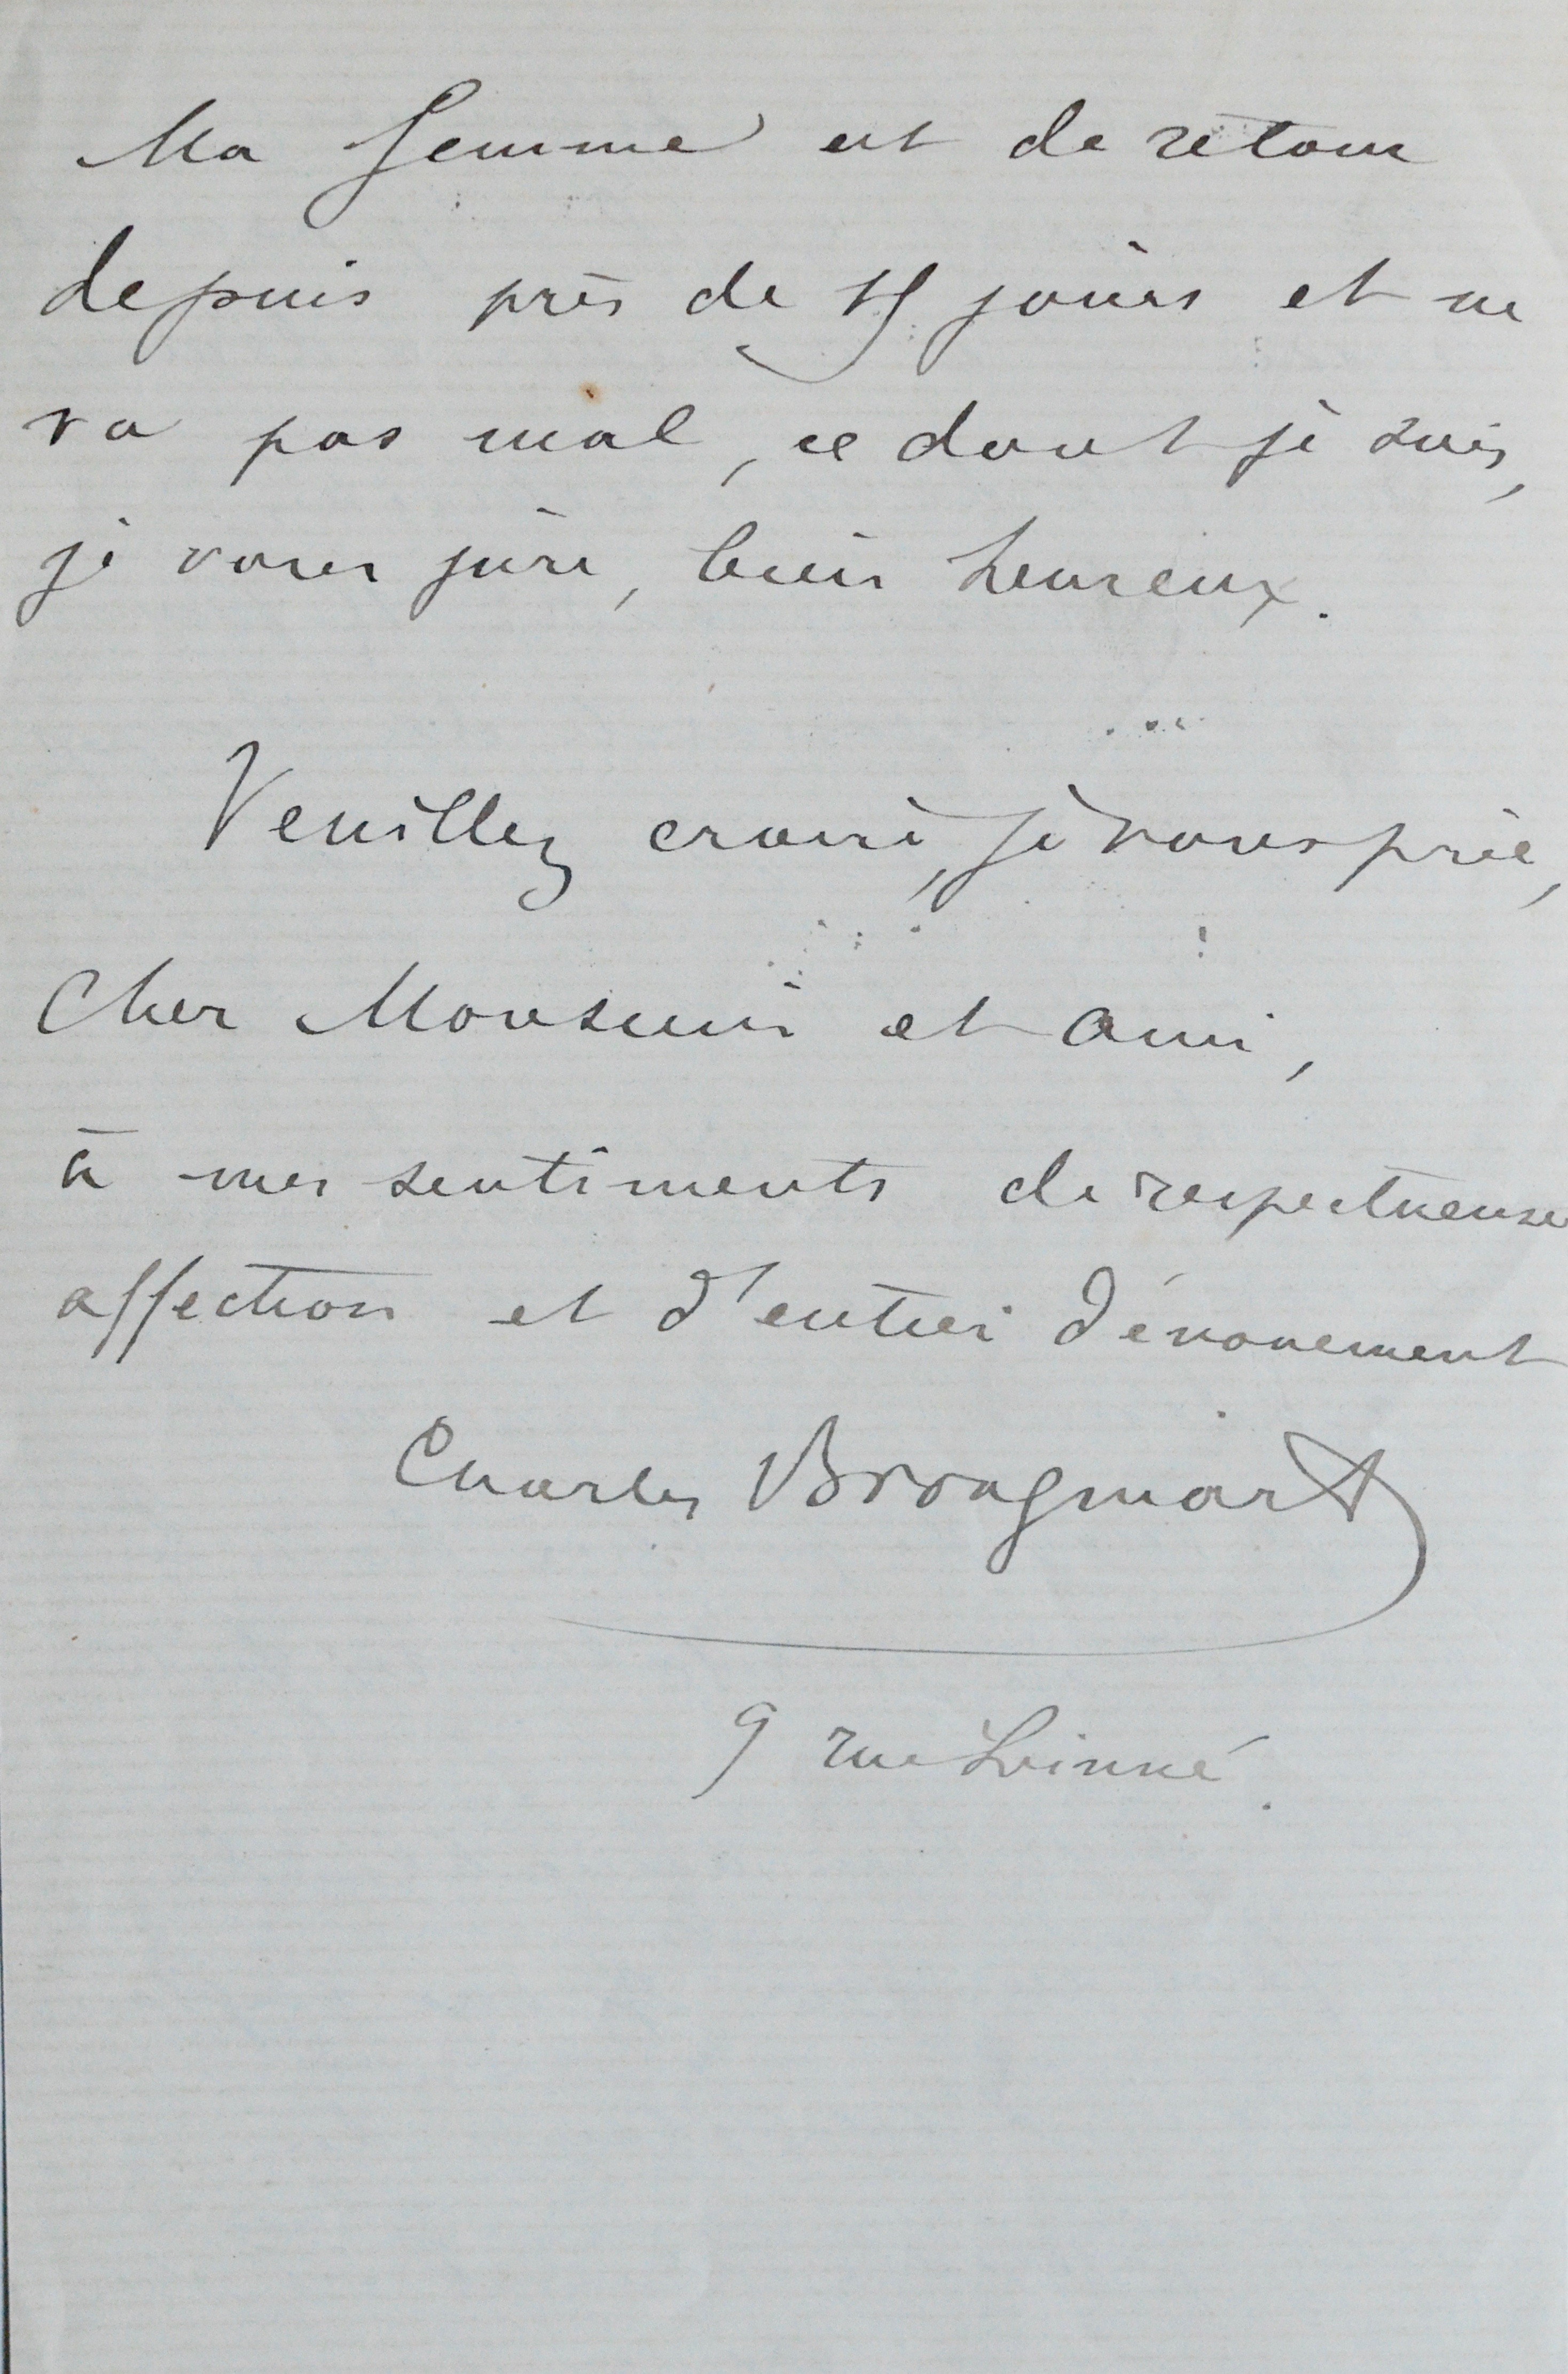 Ma femme est de retour
depuis près de 15 jours et ne
va pas mal, ce dont je suis,
je vous jure, bien heureux.
Veuillez croire, je vous prie,
Cher Monsieur et ami,
à mes sentiments de respectueuse
affection et d'entier dévouement
Charles Brongniart
9 rue Linné.